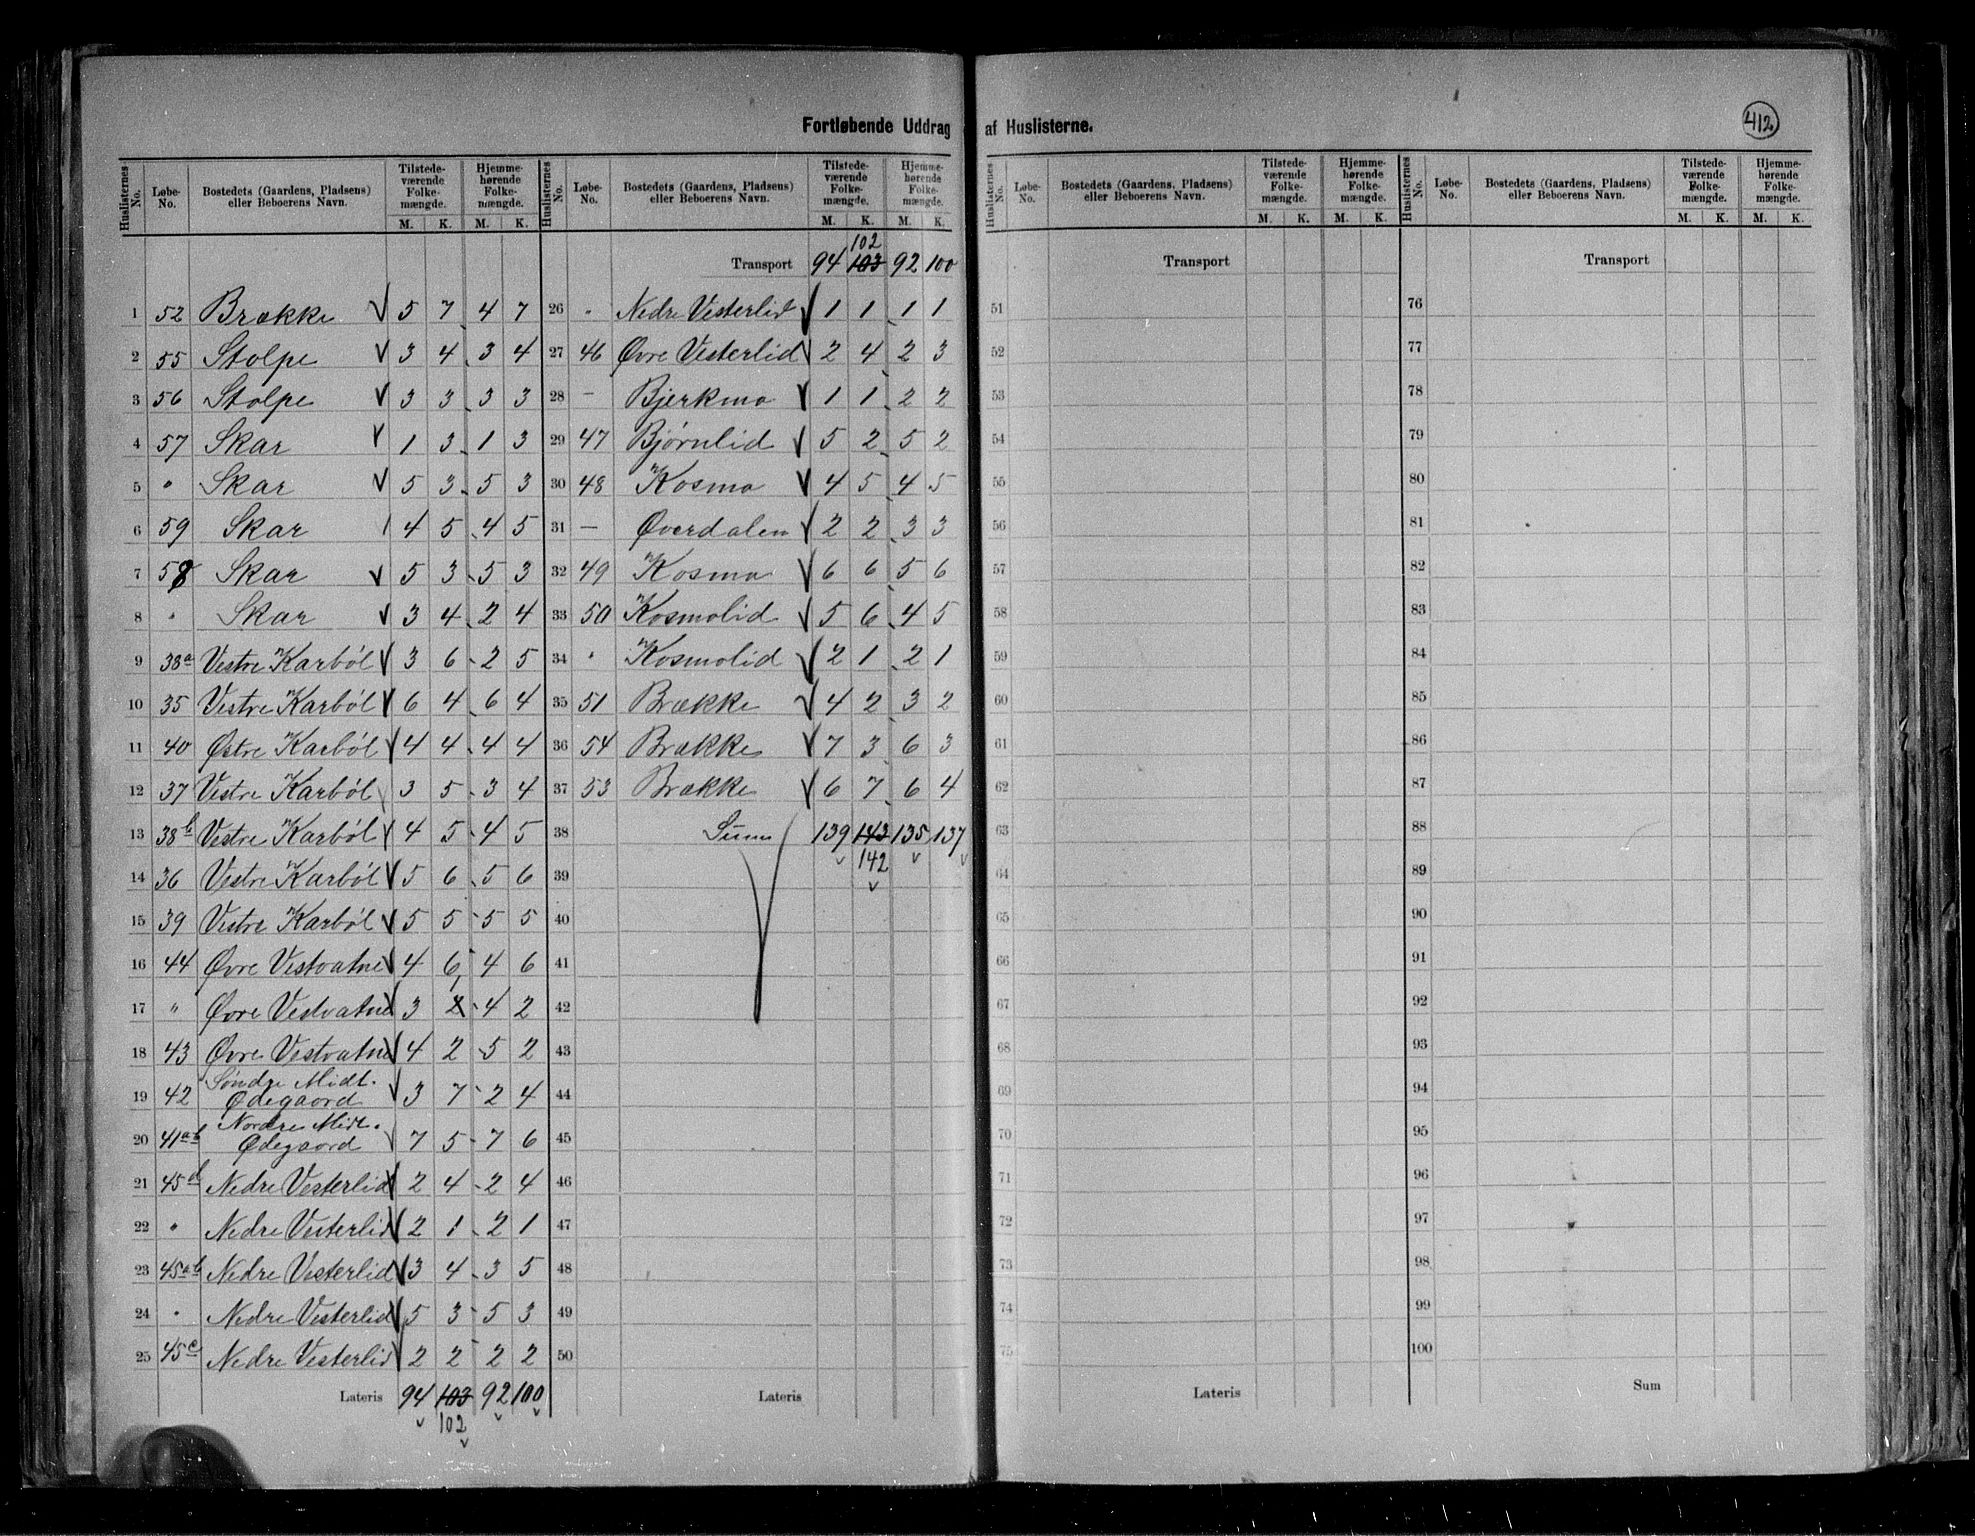 Fortløbende Uddrag af Huslisterne.
412
Huslisternes No. | Løbe-No. | Bostedets (Gaardens, Pladsens) eller Beboerens Navn. | Tilstedeværende Folkemængde. M. K. | Hjemmehørende Folkemængde. M. K.
1 52 Brække V 5 7 4 7
2 55 Stolpe V 3 4 3 4
3 56 Stolpe V 3 3 3 3
4 57 Skar V 1 3 1 3
5 " Skar V 5 3 5 3
6 59 Skar 4 5 4 5
7 58 Skar V 5 3 5 3
8 " Skar V 3 4 2 4
9 38a Vestre Karbøl V 3 6 2 5
10 35 Vestre Karbøl V 6 4 6 4
11 40 Østre Karbøl V 4 4 4 4
12 37 Vestre Karbøl 3 5 3 4
13 38b Vestre Karbøl V 4 5 4 5
14 36 Vestre Karbøl V 5 6 5 6
15 39 Vestre Karbøl V 5 5 5 5
16 44 Øvre Vestvatne V 4 6 4 6
17 " Øvre Vestvatne V 3 1 2 4 2
18 43 Øvre Vestvatne V 4 2 5 2
19 42 Søndre Midt. Ødegaard V 3 7 2 4
20 41ab Nordre Midt. Ødegaard V 7 5 7 6
21 45d Nedre Vesterlid V 2 4 2 4
22 " Nedre Vesterlid V 2 1 2 1
23 45ab Nedre Vesterlid V 3 4 3 5
24 " Nedre Vesterlid V 5 3 5 3
25 45c Nedre Vesterlid V 2 2 2 2
Lateris 94 103 92 100
102
Huslisternes No. | Løbe-No. | Bostedets (Gaardens, Pladsens) eller Beboerens Navn. | Tilstedeværende Folkemængde. M. K. | Hjemmehørende Folkemængde. M. K.
102
Transport 94 103 92 100
26 " Nedre Vesterlid V 1 1 1 1
27 46 Øvre Vesterlid V 2 4 2 3
28 – Bjerkmo V 1 1 2 2
29 47 Bjørnlid V 5 2 5 2
30 48 Kosmo V 4 5 4 5
31 – Øverdalen V 2 2 3 3
32 49 Kosmo V 6 6 5 6
33 50 Kosmolid V 5 6 4 5
34 " Kosmolid V 2 1 2 1
35 51 Brække V 4 2 3 2
36 54 Brække V 7 3 6 3
37 53 Brække V 6 7 6 4
38 Sum 139 143 135 137
142
39
40
41
42
43
44
45
46
47
48
49
50
Lateris
Huslisternes No. | Løbe-No. | Bostedets (Gaardens, Pladsens) eller Beboerens Navn. | Tilstedeværende Folkemængde. M. K. | Hjemmehørende Folkemængde. M. K.
Transport
51
52
53
54
55
56
57
58
59
60
61
62
63
64
65
66
67
68
69
70
71
72
73
74
75
Lateris
Huslisternes No. | Løbe-No. | Bostedets (Gaardens, Pladsens) eller Beboerens Navn. | Tilstedeværende Folkemængde. M. K. | Hjemmehørende Folkemængde. M. K.
Transport
76
77
78
79
80
81
82
83
84
85
86
87
88
89
90
91
92
93
94
95
96
97
98
99
100
Sum